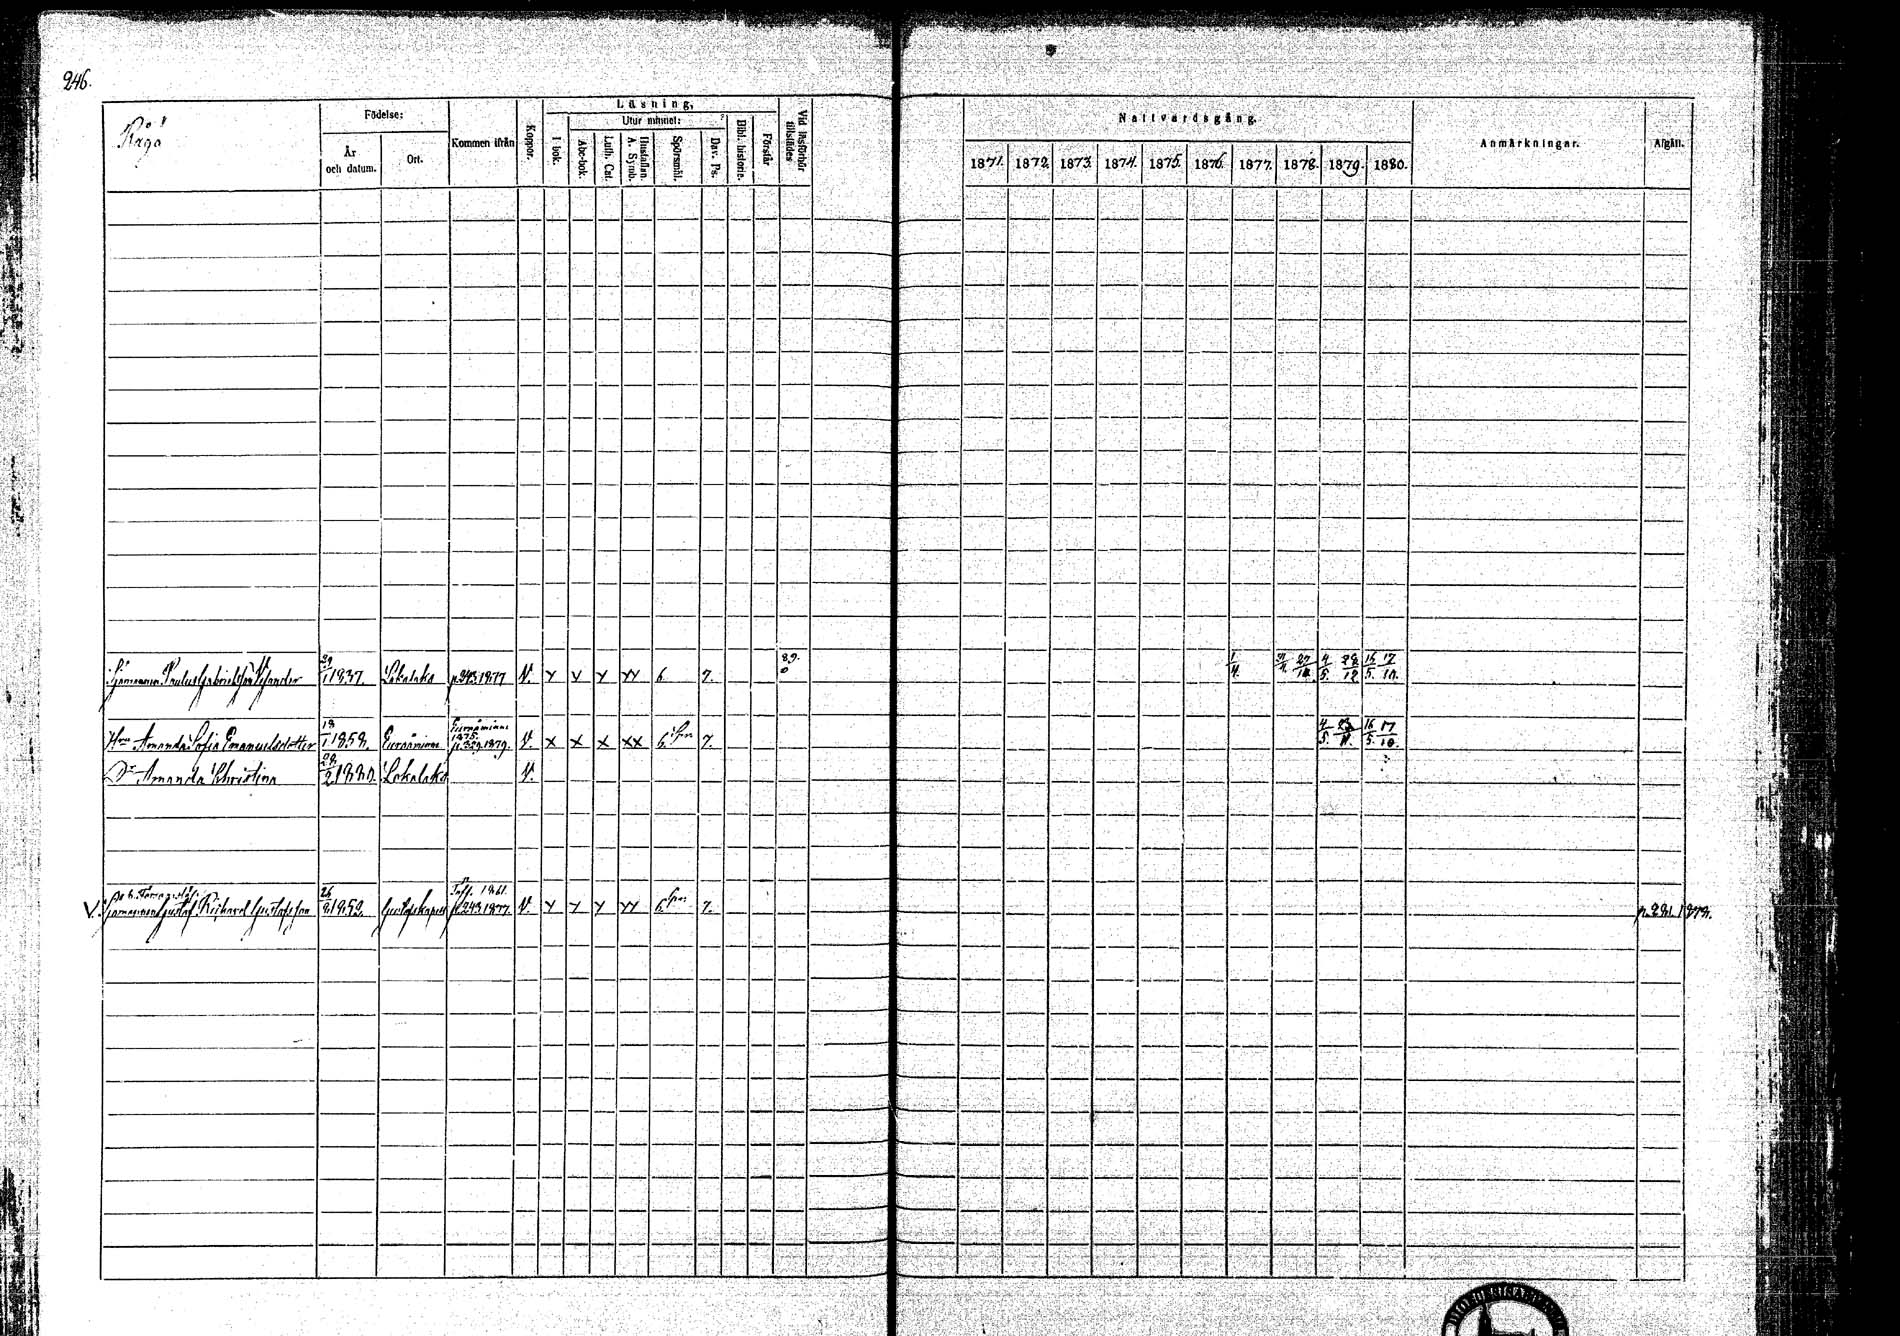 246.
Rågö
Födelse:
År och datum.
Ort.
Kommen ifrån
Koppor.
Läsning,
I bok.
Utur minnet:
Abc-bok.
Luth. Cat.
Hustaflan. A. Symb.
Spörsmål.
Dav. Ps.
Bibl. historie.
Förstår
Vid läsförhör tillstädes
Nattvardsgång.
1871. 1872. 1873. 1874. 1875. 1876. 1877. 1878. 1879. 1880.
Anmärkningar.
Afgån.
Sjömannen Paulus Gabrielsson 29/1 1837. Lokalaks p. 243. 1877 V. x v x xx 6. 7. 89. 0 1/4. 27/10. 4/5. 16/5. 17/10.
Hru Amanda Sofia Emanuelsdotter 18/1 1858. 1875. p. 329. 1879. V. x x x xx 6. 7. 4/5. 16/5. 17/10.
Dr Amanda Christina 1880. Lokalaks V.
V. Sjömannen Gustaf Richard Gustafsson 26/8 1859. 1861. p. 243. 1877. V. x x x xx 6. 7. p. 281. 1878.